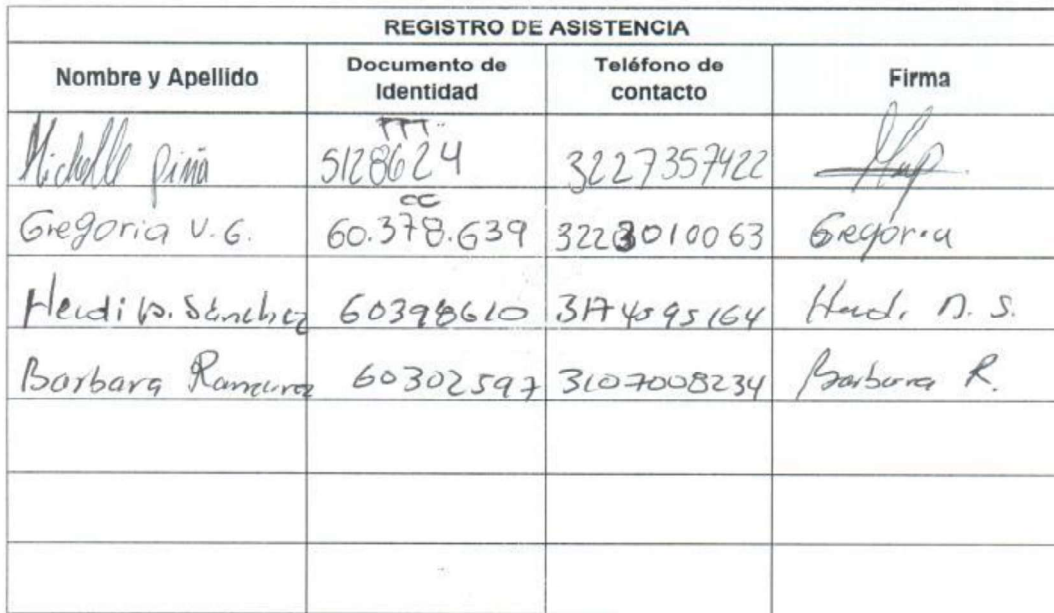 REGISTRO DE ASISTENCIA
Nombre y Apellido Documento de Identidad Teléfono de contacto Firma
Michelle Piña PPT. 5128624 3227357422
Gregoria V.G. CC 60.378.639 3223010063 Gregoria
Heidi D. Sánchez 60398610 3174595164 Heid. D. S.
Barbara Ramirez 60302597 3107008234 Barbara R.